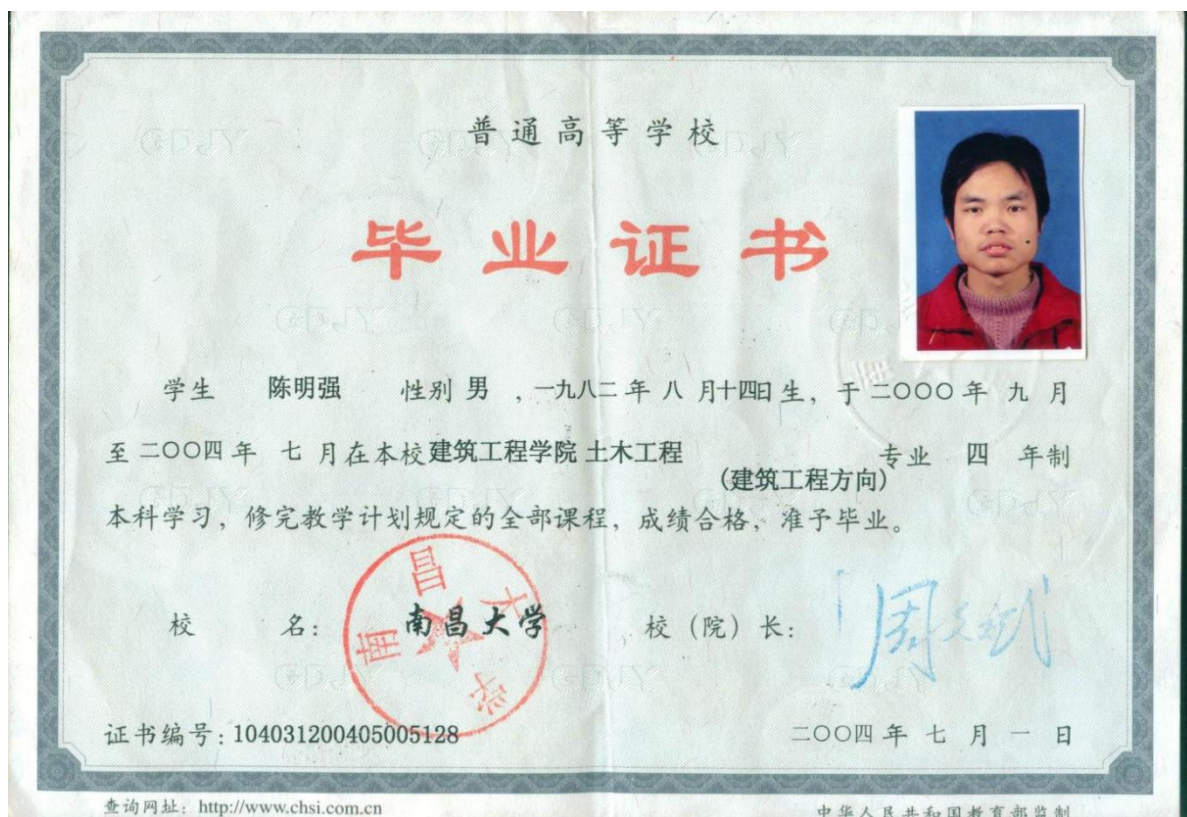 普通高等学校
毕业证书
学生 陈明强 性别 男 ，一九八二年 八 月十四日生，于二〇〇〇年 九 月
至二〇〇四年 七 月在本校建筑工程学院 土木工程 专业 四 年制
(建筑工程方向)
本科学习，修完教学计划规定的全部课程，成绩合格，准予毕业。
校 名：南昌大学 校（院）长：周文斌
南昌大学
证书编号：104031200405005128 二〇〇四年 七 月 一 日
查询网址：http://www.chsi.com.cn 中华人民共和国教育部监制